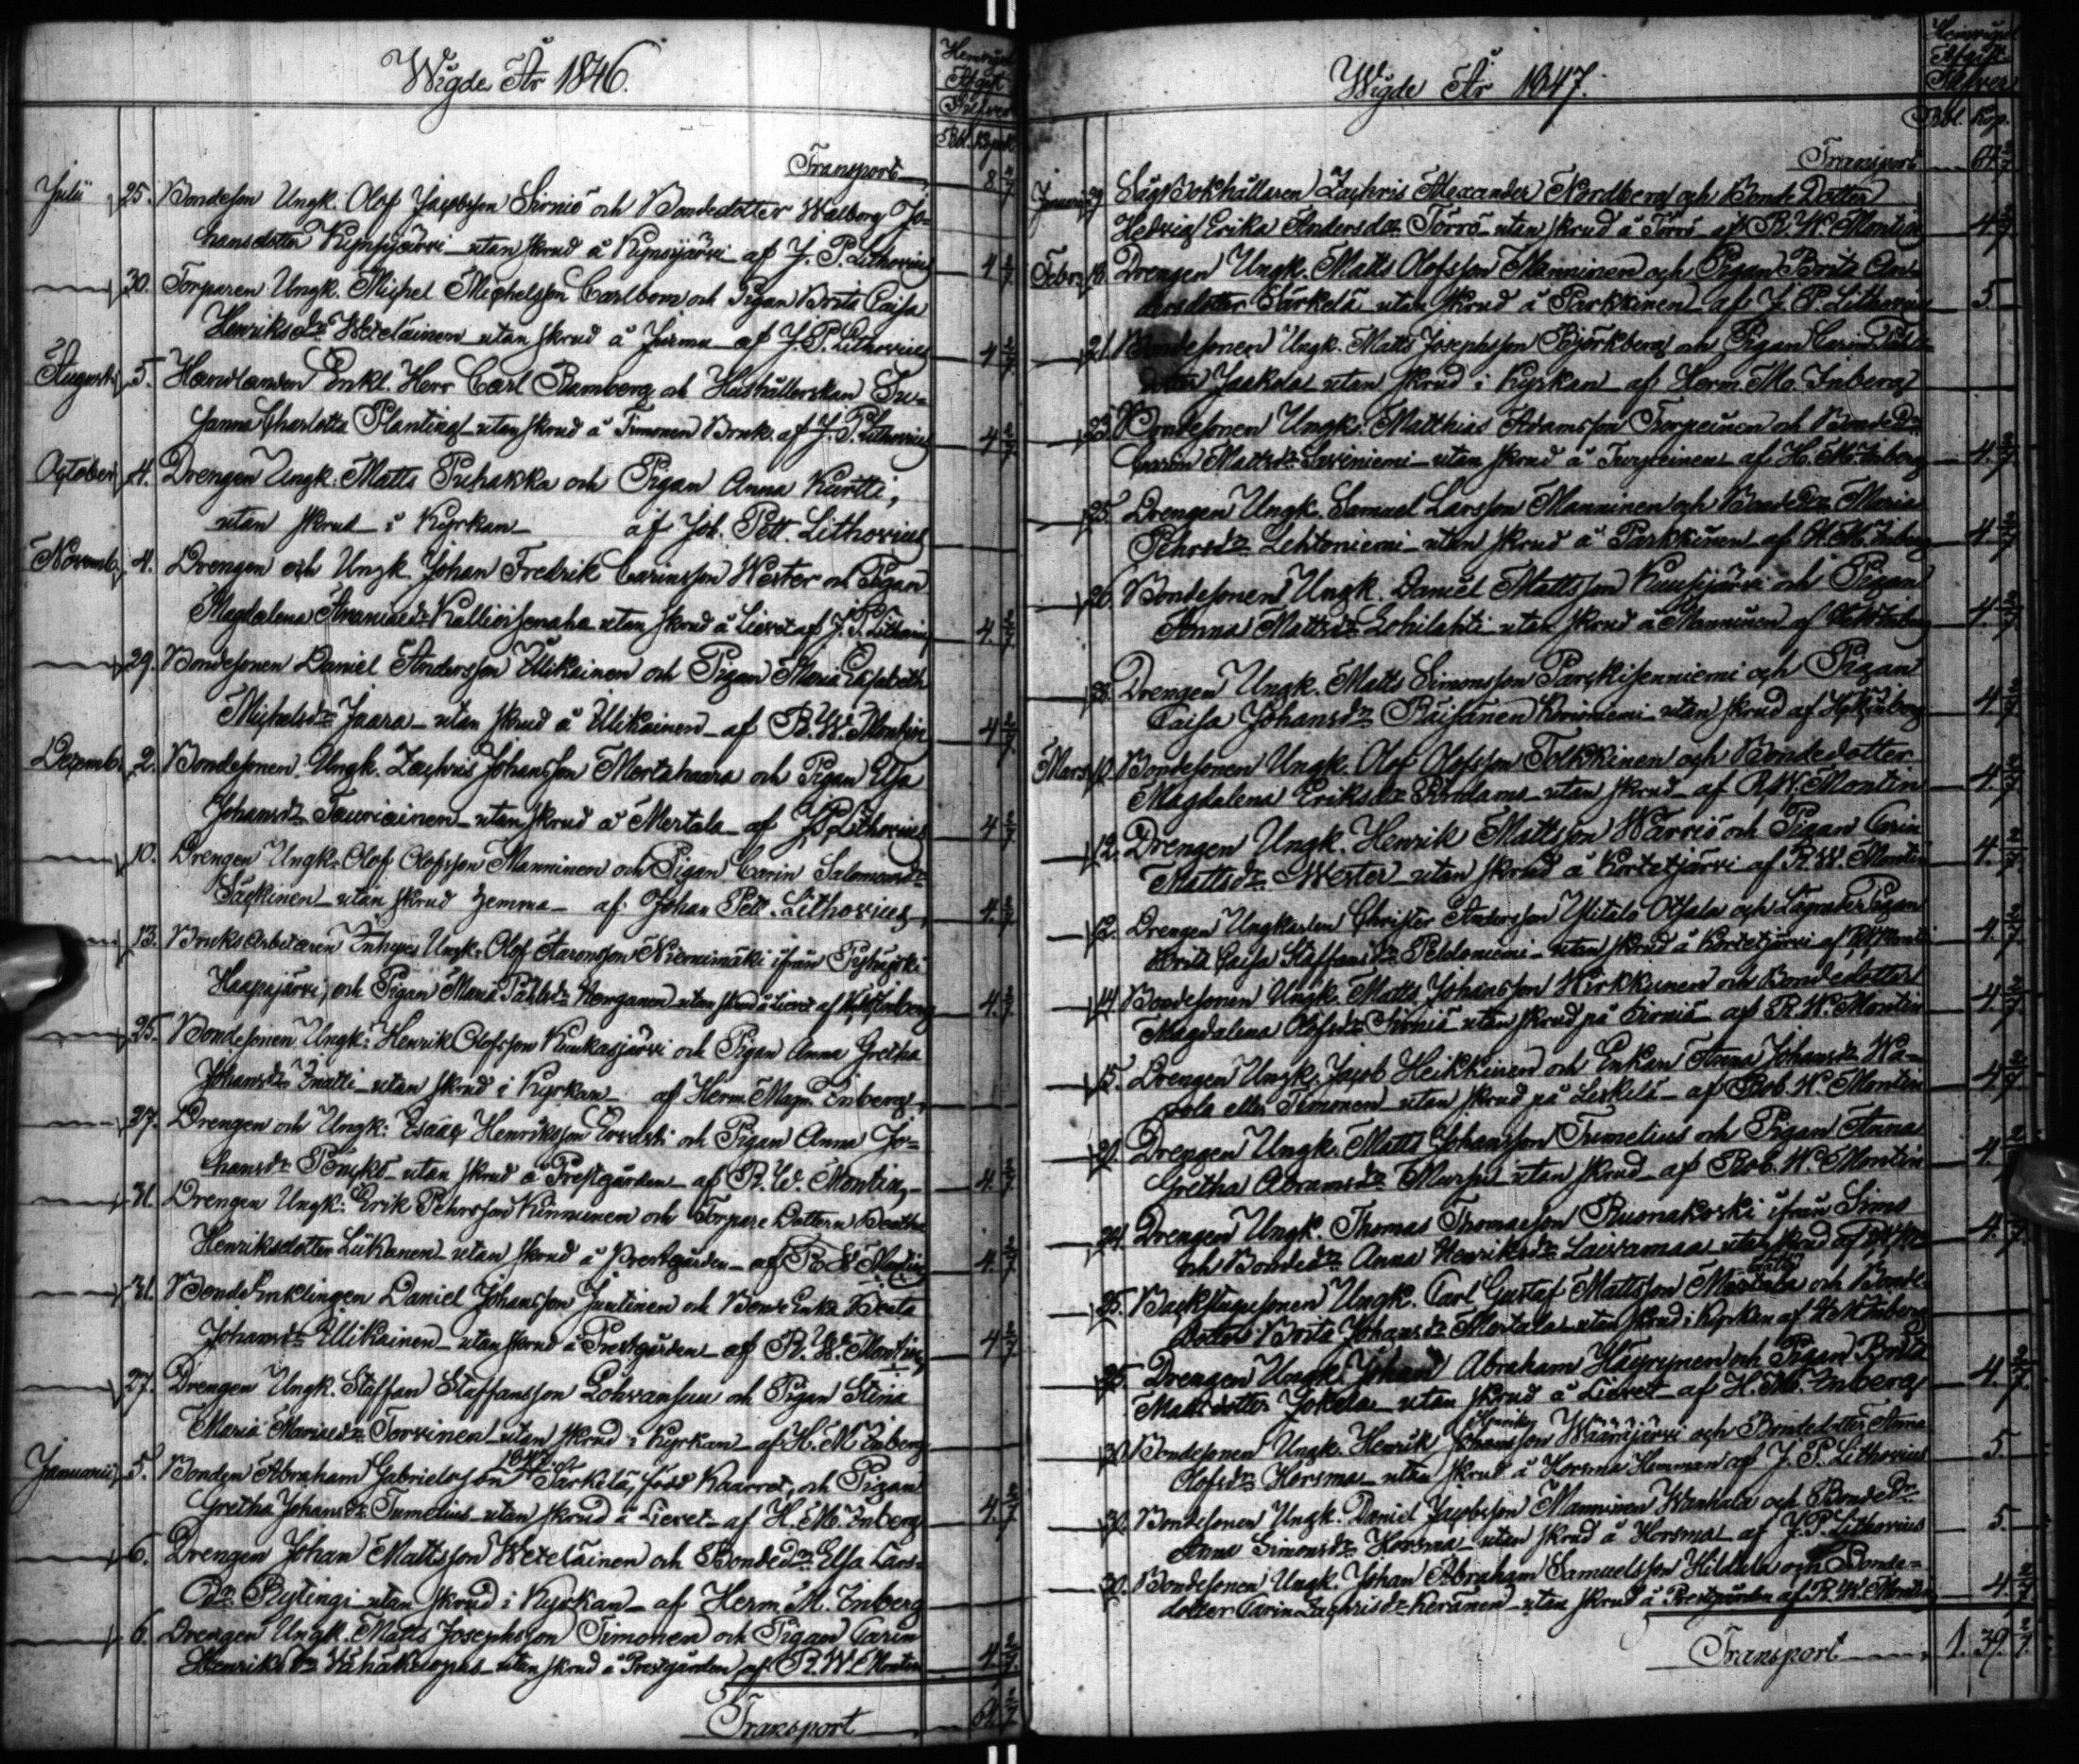 Wigde År 1846.
Afgift
Silfver
Rbl. Kopek
Transport 8 4/7
Julii 25. Bondeson Ungk. Olof Jacobsson Sirniö och Bondedotter Walborg Jo-
hansdotter Kynsijärvi utan skrud å Kynsijärvi af J. P. Lithovius 4 2/7
30. Torparen Ungk. Michel Michelsson Carlbom och Pigan Brita Caisa
Henriksdr Weteläinen utan skrud å Jurmu af J. P. Lithovius 4 2/7
Augusti 5. Handlanden Enkl. Herr Carl Bamberg och Hushållerskan Su-
sanna Charlotta Planting utan skrud å Timonen Bruk. af J. P. Lithovius 4 2/7
October 4. Drengen Ungk. Matts Puhakka och Pigan Anna Kurtti,
utan skrud i Kyrkan af Joh. Pett. Lithovius
Novemb. 4. Drengen och Ungk. Johan Fredrik Carinsson Wester och Pigan
Magdalena Ananiaedr utan skrud å Lievet af J. P. Lithovius 4 2/7
29. Bondesonen Daniel Andersson Ullikainen och Pigan Maria Elisabeth
Michelsdr Jaara utan skrud å Ullikainen af R. W. Montin 4 2/7
Decemb. 2. Bondesonen Ungk. Zachris Johansson Mertahaara och Pigan Elsa
Johansdr Tauriainen utan skrud å Mertala af J. P. Lithovius 4 2/7
10. Drengen Ungk. Olof Olofsson Manninen och Pigan Carin Salomonsdr
Säckinen utan skrud hemma af Johan Pett. Lithovius 4 2/7
13. Bruks Arbetaren Inhyses Ungk. Olof Aaronsson Niemimäki ifrån Pyhäjoki
Haapajärvi, och Pigan Maria Påhlsdr Kemganen utan skrud å Lievet af H. M. Enberg 4 2/7
25. Bondesonen Ungk: Henrik Olofsson Kuukasjärvi och Pigan Anna Gretha
Johansdr Inatti utan skrud i Kyrkan af Herm. Magn. Enberg
27. Drengen och Ungk: Esaias Henriksson Ervasti och Pigan Anna Jo-
hansdr utan skrud å Prestgården af R. W. Montin 4 2/7
31. Drengen Ungk: Erik Pehrsson Kinnunen och Torpare Dottern Beatha
Henriksdotter Liikanen utan skrud å Prestgården af R. W. Montin 4 2/7
31. Bonde Enklingen Daniel Johansson Juntinen och Bonde Enka Beata
Johansdr Ullikainen utan skrud å Prestgården af R. W. Montin 4 2/7
27. Drengen Ungk. Staffan Staffansson Lohvansuu och Pigan Stina
Maria Mariaedr Torvinen utan skrud i Kyrkan af H. M. Enberg
1847.
Januarii 5. Bonden Abraham Gabrielsson Särkelä, född Kaarret, och Pigan
Gretha Johansdr Tumelius utan skrud å Lievet af H. M. Enberg 4 2/7
6. Drengen Johan Mattsson Weteläinen och Bondedr Elsa Lars-
Dr Rytingi utan skrud i Kyrkan af Herm M. Enberg
6. Drengen Ungk. Matts Josephsson Timonen och Pigan Carin
Henriksdr utan skrud å Prestgården af R. W. Montin 4 2/7
Transport 64 2/7
Wigde År 1847.
Afgift
Silfver
Rbl. Kop.
Transport 64 2/7
29 Såg Bokhållaren Zachris Alexander Nordberg och Bonde Dotter
Hedvig Erika Andersdr Törrö utan skrud å Törrö af R. W. Montin 4 2/7
Febr. 18. Drengen Ungk. Matts Olofsson Manninen och Pigan Brita An-
dersdotter Särkelä utan skrud å Parkkinen af J. P. Lithovius 5
21 Bondesonen Ungk. Matts Josephsson Björkberg och Pigan Carin
dotter Jaakola utan skrud i Kyrkan af Herm. M. Enberg
23 Bondesonen Ungk. Matthias Adamsson Turpeinen och Bondedr
Carin Mattsdr Saviniemi utan skrud å Turpeinen af H. M. Enberg 4 2/7
25. Drengen Ungk. Samuel Larsson Manninen och Bondedr Maria
Pehrsdr Lehtoniemi utan skrud å Parkkinen af H. M. Enberg 4 2/7
26. Bondesonen Ungk. Daniel Mattsson Kuusijärvi och Pigan
Anna Mattsdr Lohilahti utan skrud å Manninen af H. M. Enberg 4 2/7
28. Drengen Ungk. Matts Simonsson Parckisenniemi och Pigan
Caisa Johansdr Räisänen utan skrud af H. M. Enberg 4 2/7
Mars 10 Bondesonen Ungk. Olof Olofsson Tolkkinen och Bondedotter
Magdalena Eriksdr utan skrud af R. W. Montin 4 2/7
12. Drengen Ungk. Henrik Mattsson Wärriö och Pigan Carin
Mattsdr Wester utan skrud å Kortetjärvi af R. W. Montin 4 2/7
12. Drengen Ungkarlen Christer Andersson Ylitalo Otsala och Pigan
Brita Caisa Staffansdr Peldoniemi utan skrud å Kortetjärvi af R. W. Montin 4 2/7
14 Bondesonen Ungk. Matts Johansson Wirkkunen och Bondedotter
Magdalena Olofsdr Sirniö utan skrud på Sirniö af R. W. Montin 4 2/7
15. Drengen Ungk. Jacob Heikkinen och Enkan Anna Johansdr Wa-
rola eller Timonen utan skrud på Leskelä af Rob. W. Montin 4 2/7
21. Drengen Ungk. Matts Johansson Tumelius och Pigan Anna
Gretha Abramsdr Murhu utan skrud af Rob. W. Montin 4 2/7
24. Drengen Ungk. Thomas Thomaeson Ruonakoski ifrån Simo
och Bondedr Anna Henriksdr Laivamaa utan skrud af R. W. 4
25. Backstugusonen Ungk. Carl Gustaf Mattsson och Bonde-
Dottern Brita Johansdr Mertala utan skrud i Kyrkan af H. M. Enberg
25. Drengen Ungk. Johan Abraham Häyrynen och Pigan Brita
Matts dotter Jokela utan skrud å Lievet af H. M. Enberg 4 2/7
Henriks
30. Bondesonen Ungk. Henrik Johansson Wäärajärvi och Bondedotter Anna
Olofsdr Horsma utan skrud å Horsma Hemman af J. P. Lithovius 5
30. Bondesonen Ungk. Daniel Jacobsson Manninen Wanhala och Bonde Dr
Anna Simonsdr Horsma utan skrud å Horsma af J. P. Lithovius 5.
30. Bondesonen Ungk. Johan Abraham Samuelsson Hildula och Bonde-
dotter Carin Zachrisdr Keränen utan skrud å Prestgården af R. W. Montin 4 2/7
Transport 1. 39 2/7